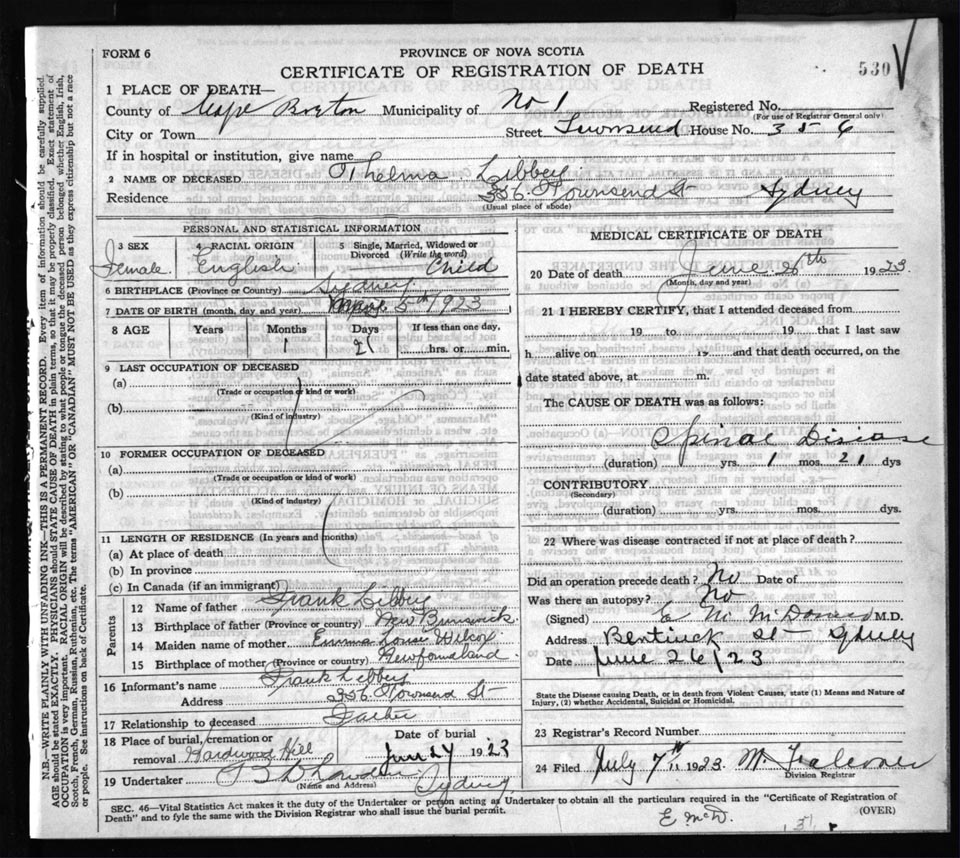 FORM 6
PROVINCE OF NOVA SCOTIA
CERTIFICATE OF REGISTRATION OF DEATH
530
1 PLACE OF DEATH—
County of Cape Breton Municipality of No 1 Registered No.
(For use of Registrar General only)
City or Town Street Townsend House No. 356
If in hospital or institution, give name
2 NAME OF DECEASED Thelma Libbey
Residence 356 Townsend St Sydney
(Usual place of abode)
PERSONAL AND STATISTICAL INFORMATION
3 SEX 4 RACIAL ORIGIN 5 Single, Married, Widowed or Divorced (Write the word)
Female English Child
6 BIRTHPLACE (Province or Country) Sydney
7 DATE OF BIRTH (month, day and year) 5th 1923
8 AGE Years Months Days If less than one day,
1 21 hrs. or min.
9 LAST OCCUPATION OF DECEASED
(a)
(Trade or occupation or kind of work)
(b)
(Kind of industry)
10 FORMER OCCUPATION OF DECEASED
(a)
(Trade or occupation or kind of work)
(b)
(Kind of industry)
11 LENGTH OF RESIDENCE (In years and months)
(a) At place of death
(b) In province
(c) In Canada (if an immigrant)
Parents
12 Name of father Frank Libbey
13 Birthplace of father (Province or country) New Brunswick
14 Maiden name of mother Emma Louise Wilcox
15 Birthplace of mother (Province or country) Newfoundland
16 Informant's name Frank Libbey
Address 356 Townsend St
17 Relationship to deceased Father
18 Place of burial, cremation or removal Hardwood Hill Date of burial June 27 1923
19 Undertaker Sydney
(Name and Address)
MEDICAL CERTIFICATE OF DEATH
20 Date of death June 26th 1923
(Month, day and year)
21 I HEREBY CERTIFY, that I attended deceased from
19 to 19 that I last saw
h alive on 19 and that death occurred, on the
date stated above, at m.
The CAUSE OF DEATH was as follows:
Spinal Disease
(duration) yrs. 1 mos. 21 dys
CONTRIBUTORY
(Secondary)
(duration) yrs. mos. dys.
22 Where was disease contracted if not at place of death?
Did an operation precede death? No Date of
Was there an autopsy? No
(Signed) E M McDonald M.D.
Address Bentinck St Sydney
Date June 26/23
State the Disease causing Death, or in death from Violent Causes, state (1) Means and Nature of
Injury, (2) whether Accidental, Suicidal or Homicidal.
23 Registrar's Record Number
24 Filed July 7th 1923
Division Registrar
SEC. 46—Vital Statistics Act makes it the duty of the Undertaker or person acting as Undertaker to obtain all the particulars required in the "Certificate of Registration of
Death" and to fyle the same with the Division Registrar who shall issue the burial permit.
(OVER)
E McD.
N.B.—WRITE PLAINLY WITH UNFADING INK—THIS IS A PERMANENT RECORD. Every item of information should be carefully supplied.
AGE should be stated EXACTLY. PHYSICIANS should STATE CAUSE OF DEATH in plain terms, so that it may be properly classified. Exact statement of
OCCUPATION is very important. RACIAL ORIGIN will be described by stating to what people or tongue the deceased person belonged whether English, Irish,
Scotch, French, German, Russian, Ruthenian, etc. The terms "AMERICAN" or "CANADIAN" MUST NOT BE USED as they express citizenship but not a race
or people. See instructions on back of Certificate.